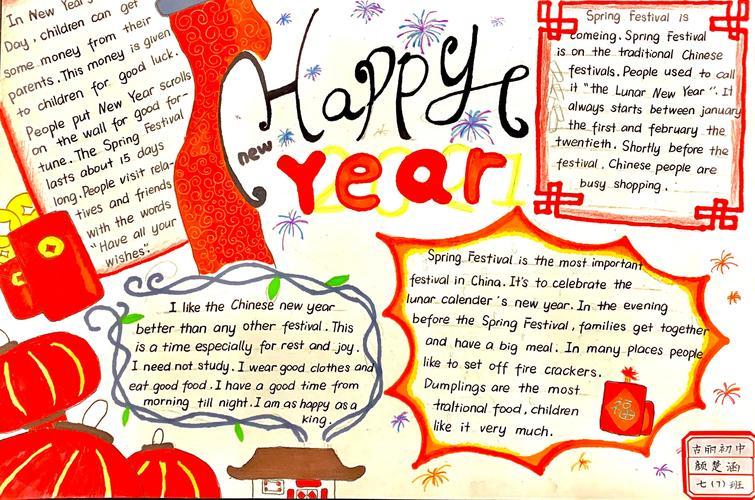 In New Year's
Day, children can get
some money from their
parents. This money is given
to children for good luck.
People put New Year scrolls
on the wall for good for-
tune. The Spring Festival
lasts about 15 days
long. People visit rela-
tives and friends
with the words
"Have all your
wishes".
Happy
new
Year
2021
Spring Festival is
comeing. Spring Festival
is on the traditional Chinese
festivals. People used to call
it "the Lunar New Year". It
always starts between january
the first and february the
twentieth. Shortly before the
festival, Chinese people are
busy shopping.
I like the Chinese new year
better than any other festival. This
is a time especially for rest and joy.
I need not study. I wear good clothes and
eat good food. I have a good time from
morning till night. I am as happy as a
king.
Spring Festival is the most important
festival in China. It's to celebrate the
lunar calender's new year. In the evening
before the Spring Festival, families get together
and have a big meal. In many places people
like to set off fire crackers.
Dumplings are the most
traltional food, children
like it very much.
福
古丽初中
颜楚涵
七(7)班